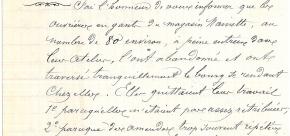 J'ai l'honneur de vous informer que les
ouvrières en gants du magasin Nannette, au
nombre de 80 environ, à peine entrées dans
leur atelier, l'ont abandonné et ont
traversé tranquillement le bourg se rendant
chez elles. Elles quittaient leur travail
1º parce qu'elles n'étaient pas assez rétribuées,
2º parce que des amendes trop souvent répétées